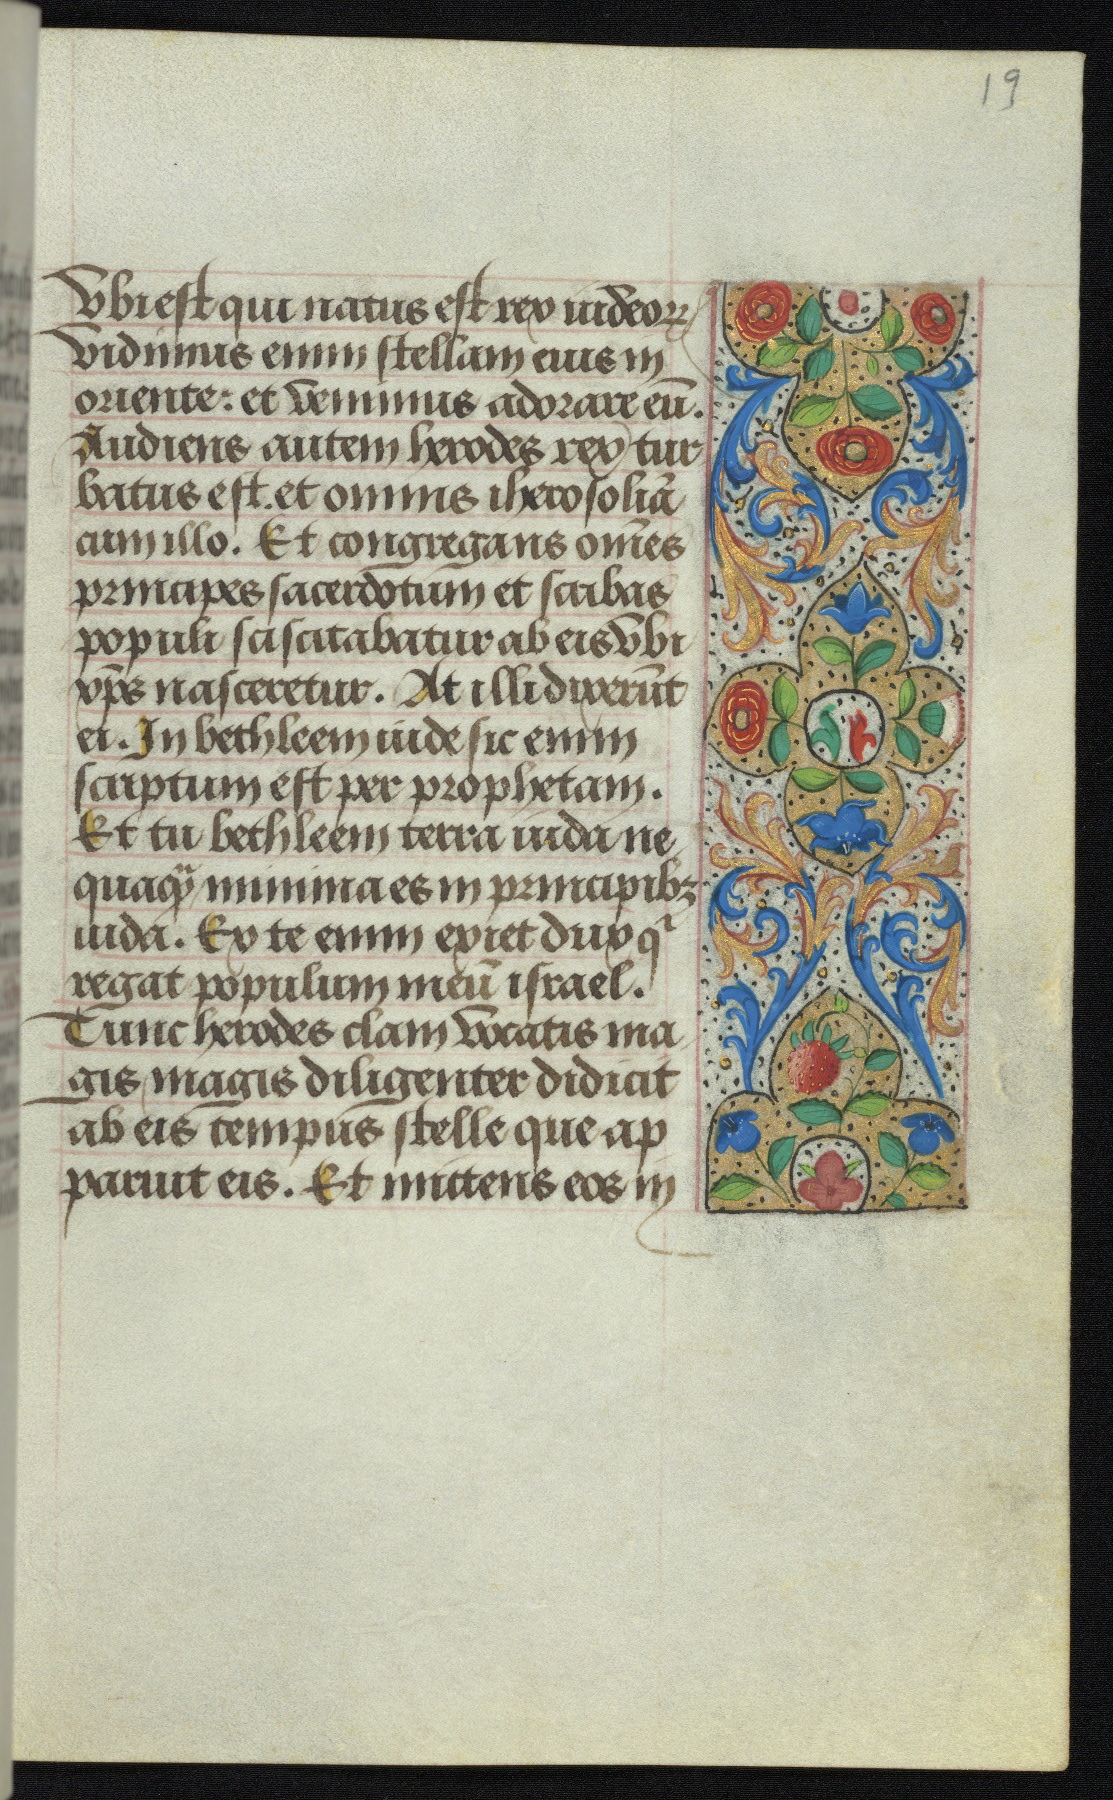 19
Vbi est qui natus est rex iudeoꝝ
Vidimus enim stellam eius in
oriente: et venimus adorare eū.
Audiens autem herodes rex tur
batus est. et omnis iherosolimā
cum illo. Et congregans om̄es
principes sacerdotum et scribas
populi sciscitabatur ab eis vbi
xp̄s nasceretur. At illi dixerūt
ei. In bethleem iude sic enim
scriptum est per prophetam.
Et tu bethleem terra iuda ne
quaqͣ minima es in principibꝫ
iuda. Ex te enim exiet dux qͥ
regat populum meū israel.
Tunc herodes clam vocatis ma
gis magis diligenter didicit
ab eis tempus stelle que ap
paruit eis. Et mittens eos in